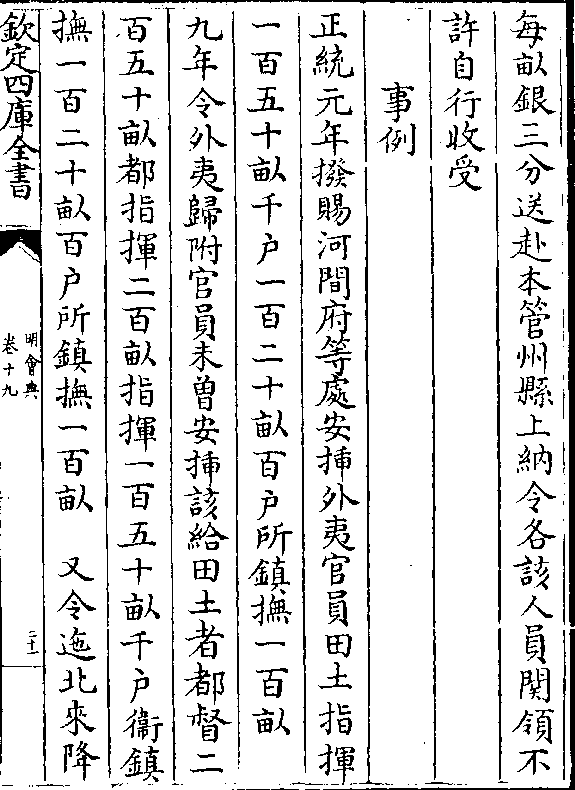 每畝銀三分送赴本管州縣上納令各該人員関領不
許自行收受
事例
正統元年撥賜河間府等處安揷外夷官員田土指揮
一百五十畝千户一百二十畝百户所鎮撫一百畝
九年令外夷歸附官員未曽安揷該給田土者都督二
百五十畝都指揮二百畝指揮一百五十畝千户衞鎮
撫一百二十畝百户所鎮撫一百畝　又令迤北來降
欽定四庫全書
明會典
卷十九
二十